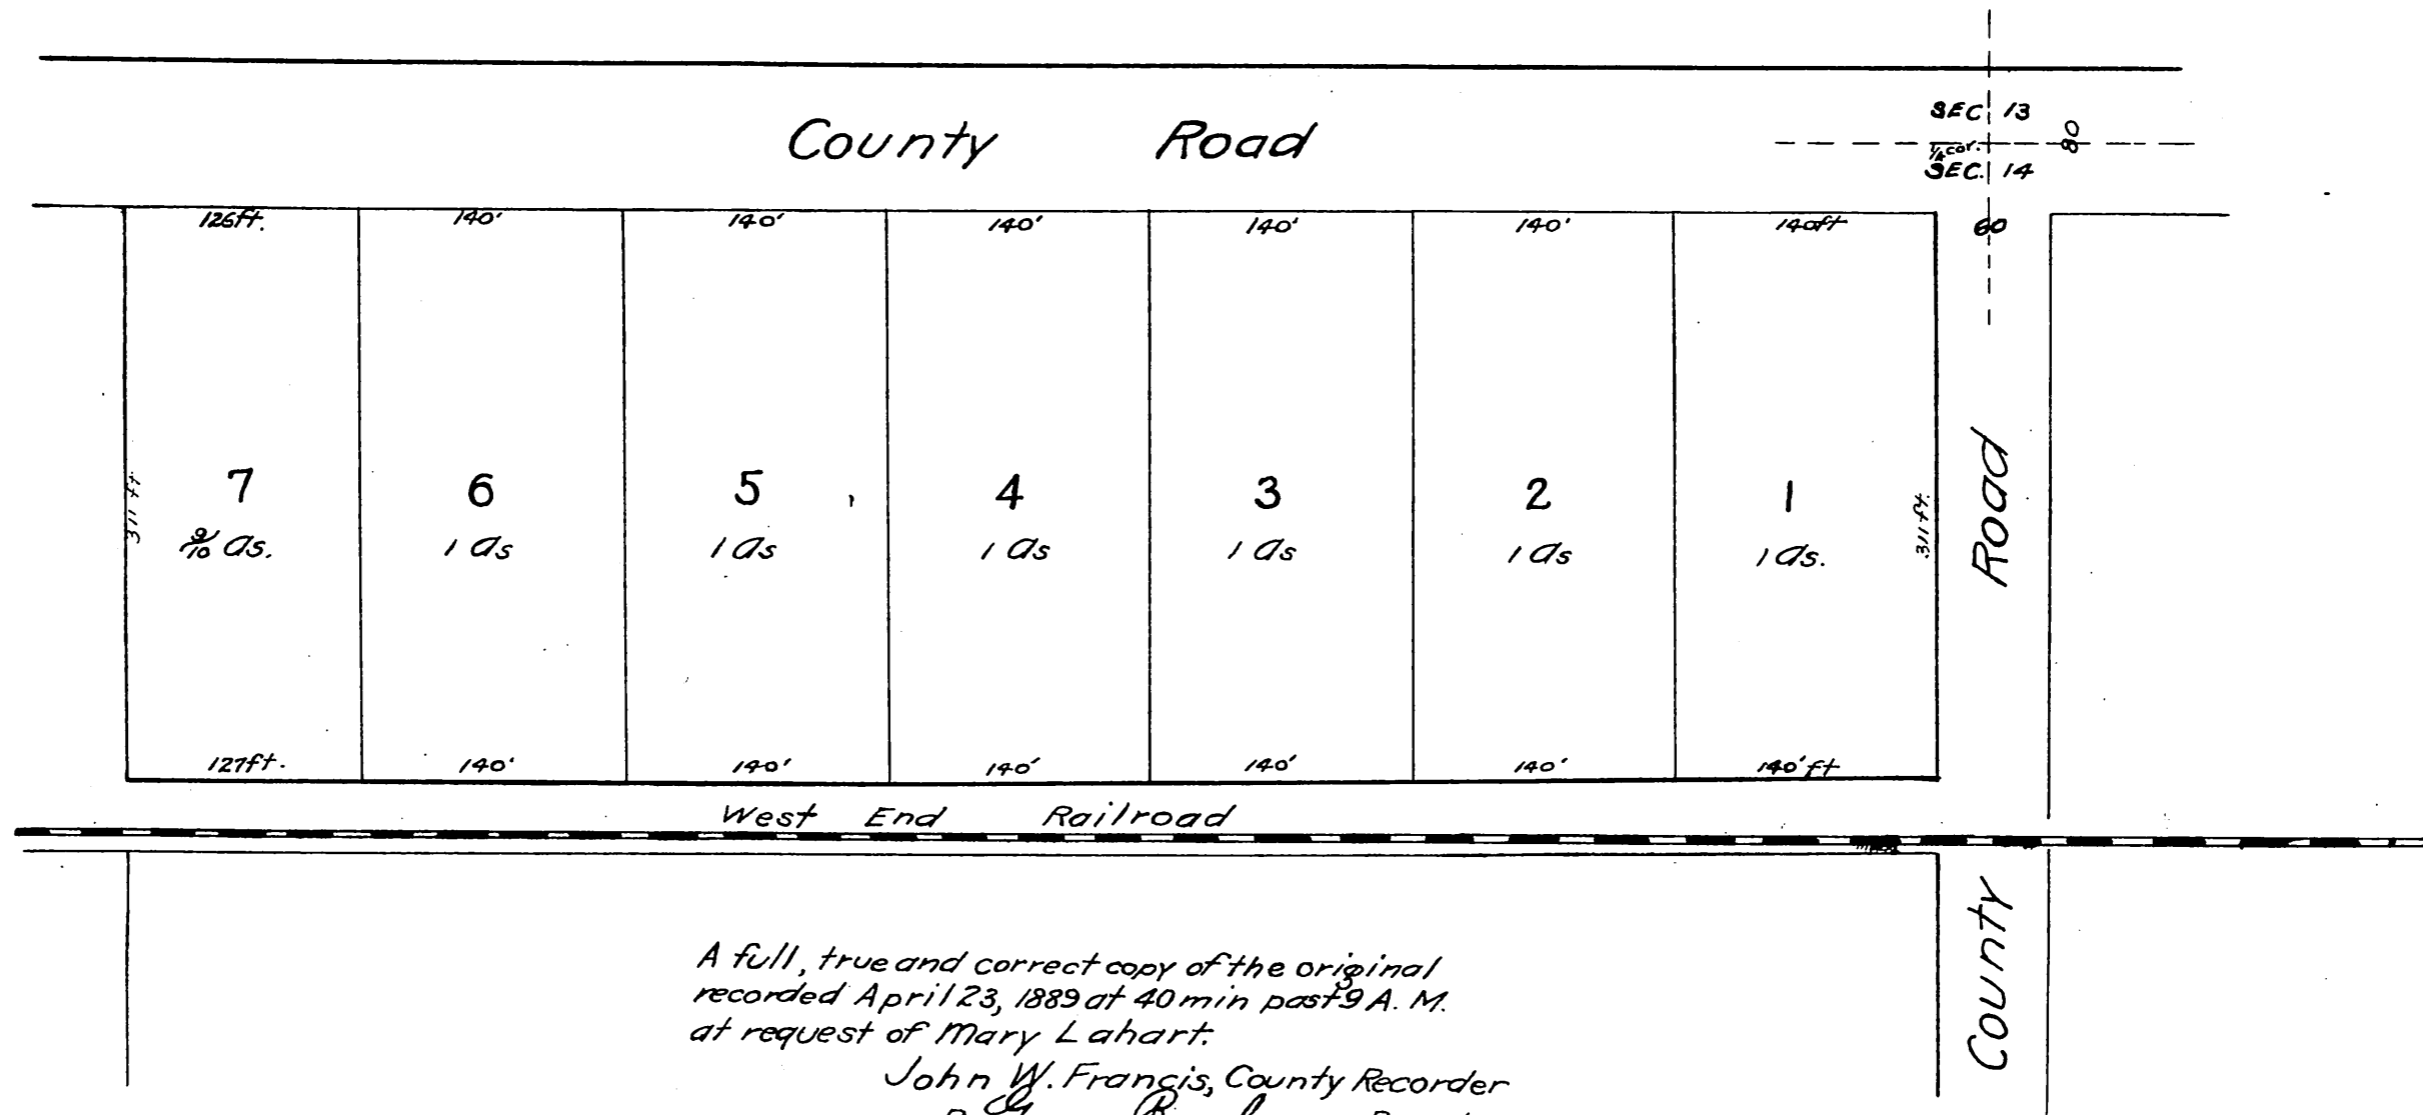 County Road
SEC 13
80
1/4 cor.
SEC. 14
126ft. 140' 140' 140' 140' 140' 140ft 60
311 ft 7 6 5 4 3 2 1 311 ft. Road
9/10 as. 1 as 1 as 1 as 1 as 1 as 1 as.
127ft. 140' 140' 140' 140' 140' 140'ft
West End Railroad
County
A full, true and correct copy of the original
recorded April 23, 1889 at 40 min past 9 A. M.
at request of Mary Lahart.
John W. Francis, County Recorder